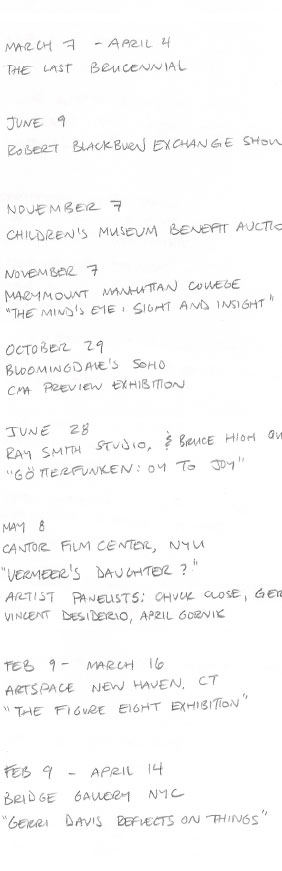 MARCH 7 - APRIL 4
THE LAST BRUCENNIAL
JUNE 9
ROBERT BLACKBURN EXCHANGE SHOW
NOVEMBER 7
CHILDREN'S MUSEUM BENEFIT AUCTIO
NOVEMBER 7
MARYMOUNT MANHATTAN COLLEGE
"THE MIND'S EYE: SIGHT AND INSIGHT"
OCTOBER 29
BLOOMINGDALE'S SOHO
CMA PREVIEW EXHIBITION
JUNE 28
RAY SMITH STUDIO, & BRUCE HIGH QU
"GÖTTERFUNKEN: OY TO JOY"
MAY 8
CANTOR FILM CENTER, NYU
"VERMEER'S DAUGHTER?"
ARTIST PANELISTS: CHUCK CLOSE, GER
VINCENT DESIDERIO, APRIL GORNIK
FEB 9 - MARCH 16
ARTSPACE NEW HAVEN, CT
"THE FIGURE EIGHT EXHIBITION"
FEB 9 - APRIL 14
BRIDGE GALLERY NYC
"GERRI DAVIS REFLECTS ON THINGS"